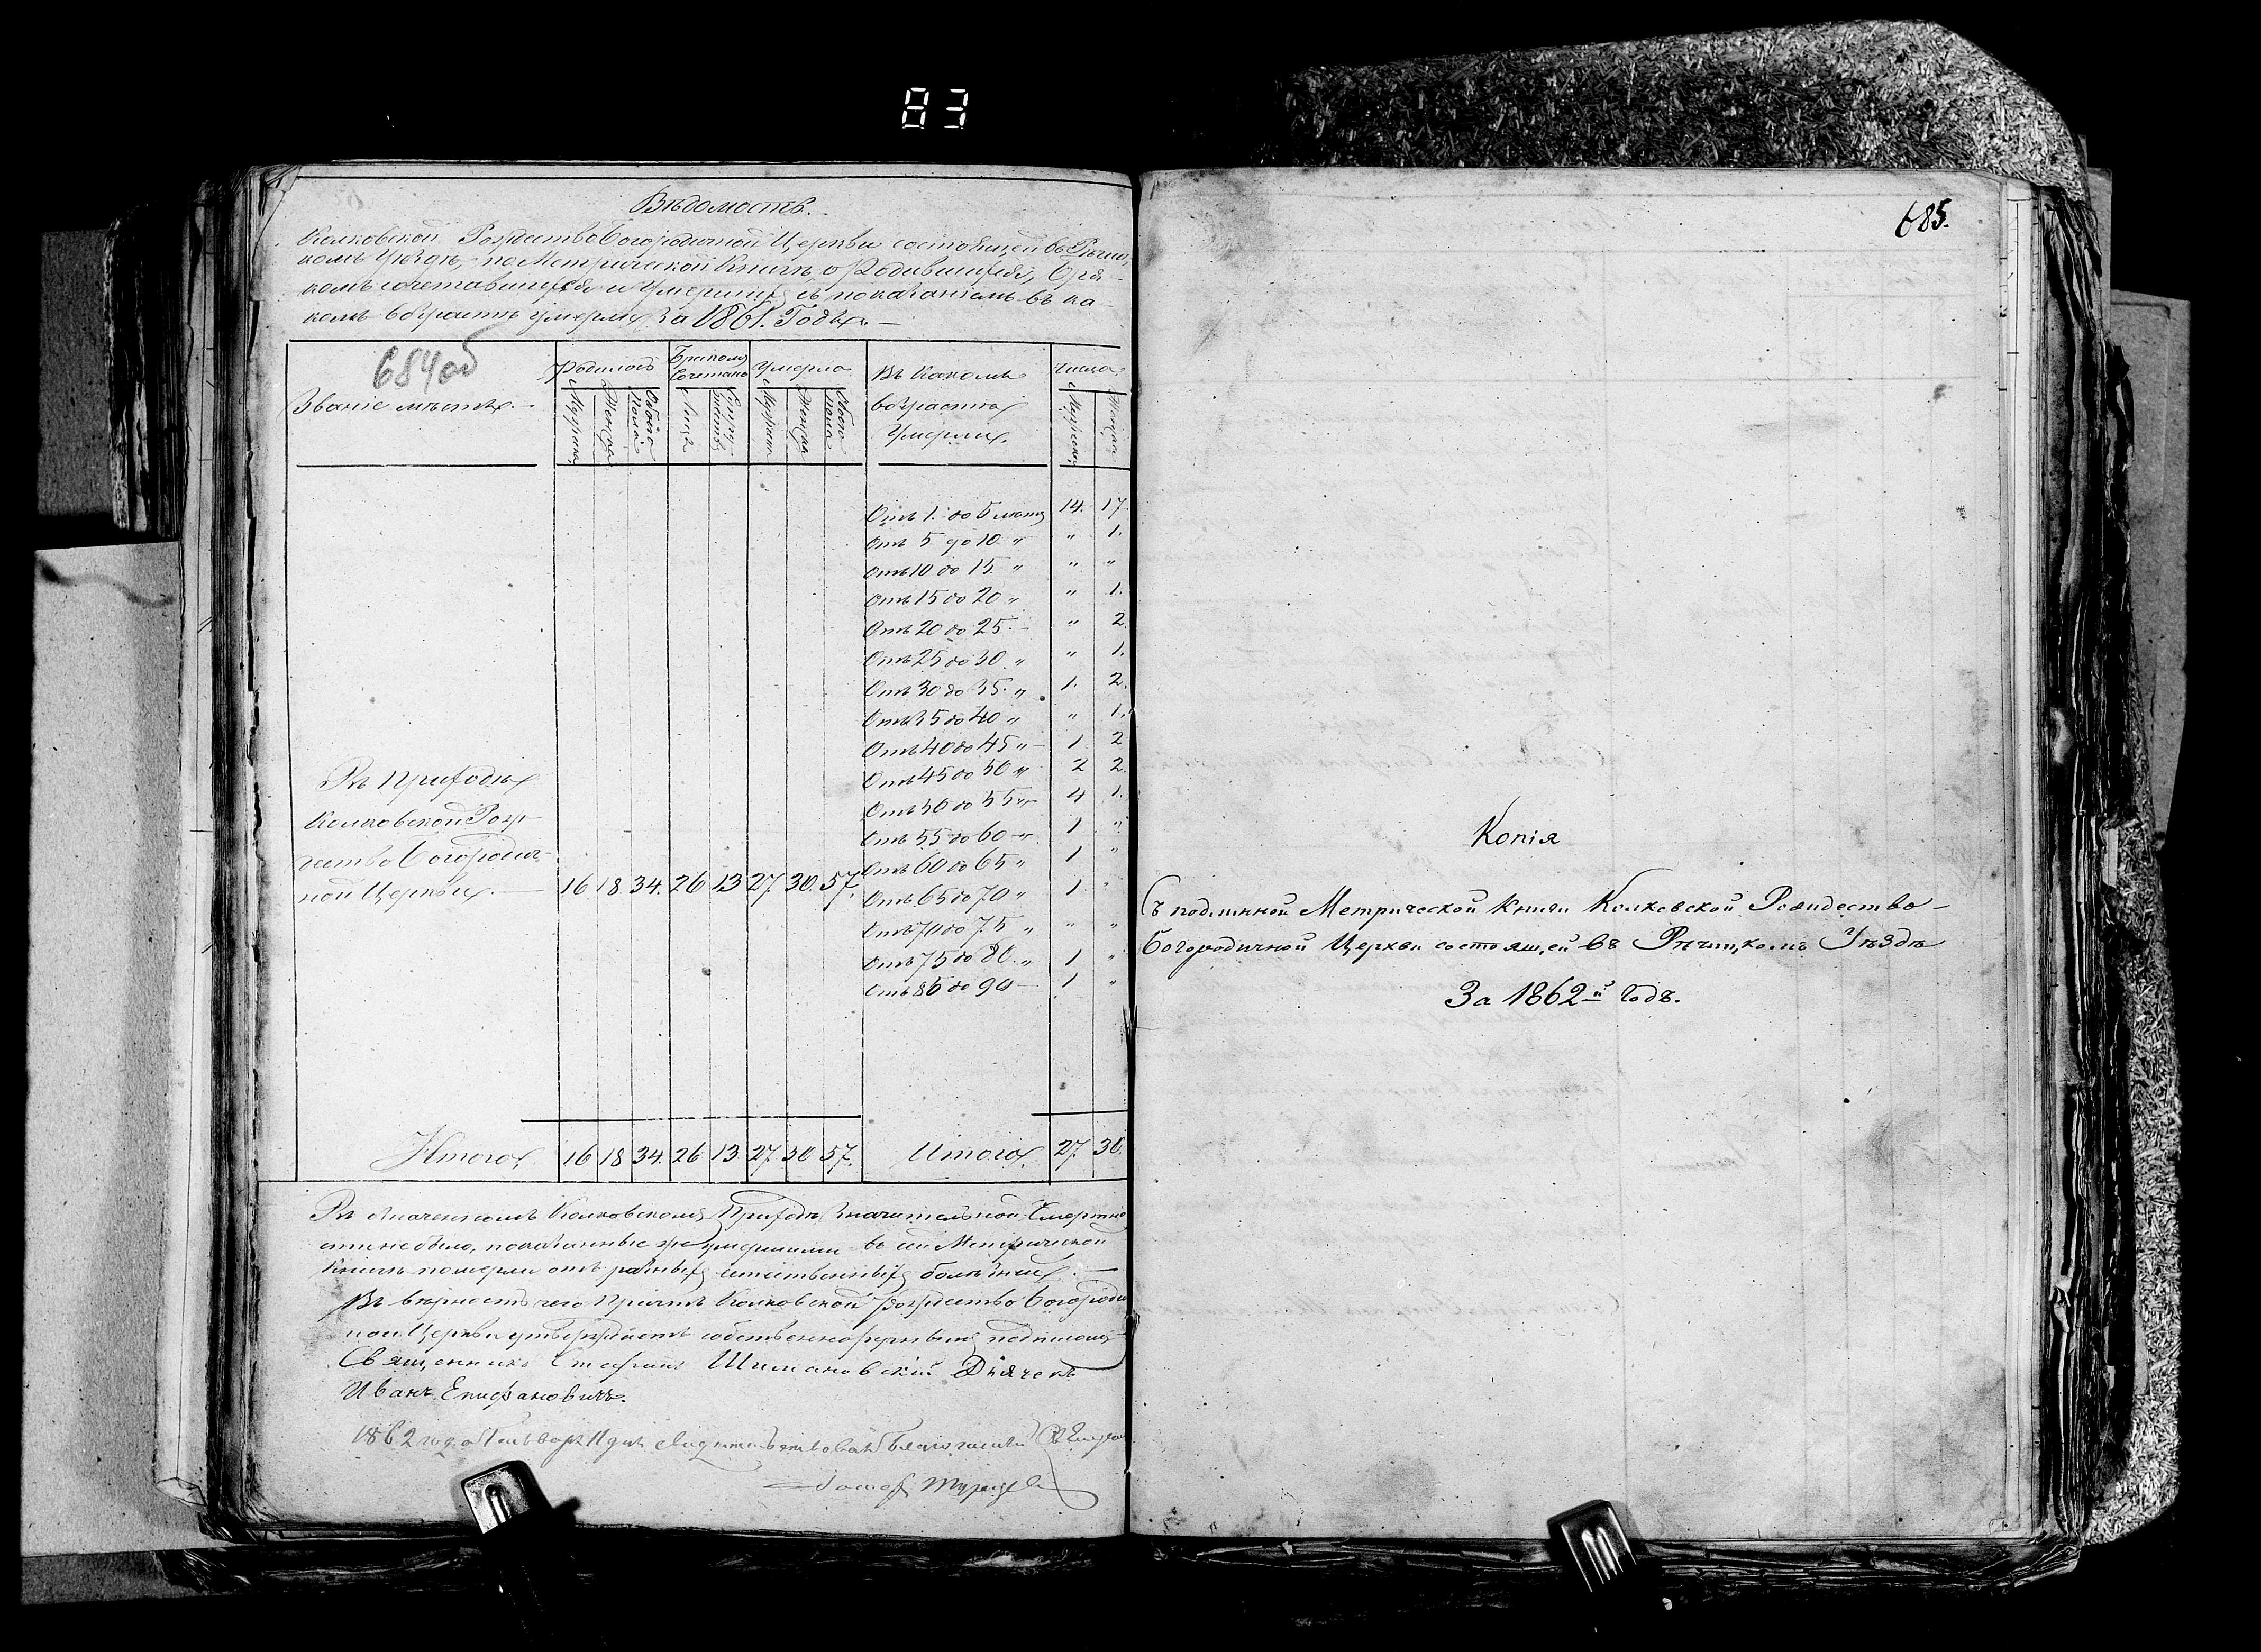 83
Вѣдомость.
Колковской РождествоБогородичной Церкви состоящей въ Рѣчиц
комъ Уѣздѣ, по Метрической Книгѣ о Родившихся, Бра-
комъ сочетавшихся и Умершихъ съ показаніемъ въ ка-
комъ возрастѣ умерли за 1861. Годъ. —
684об
Званіе мѣстъ. —
Родилось
Бракомъ Сочетано
Умерло
Въ Какомъ возрастѣ Умерли.
Число
Мужеска
Женска
Обоего пола
Лицъ
Супружествъ
Мужеска
Женска
Обоего пола
Мужеска
Женска
Отъ 1. до 5 лѣтъ 14. 17.
Отъ 5 до 10 " " 1.
Отъ 10 до 15 " " "
Отъ 15 до 20 " " 1.
Отъ 20 до 25 — " 2.
Отъ 25 до 30 " " 1.
Отъ 30 до 35 " 1. 2.
Отъ 35 до 40 " " 1.
Отъ 40 до 45 " 1 2
Отъ 45 до 50 " 2 2.
Отъ 50 до 55 " 4 1.
Отъ 55 до 60 " 1 "
Отъ 60 до 65 " 1 "
Отъ 65 до 70 " 1 "
Отъ 70 до 75 " " "
Отъ 75 до 80 " 1 "
Отъ 85 до 90 — 1 "
Въ Приходѣ
Колковской Рож-
дество Богородич-
ной Церкви. — 16 18. 34. 26 13 27 30. 57.
Итого 16 18 34. 26 13 27 30 57. Итого 27 30.
Въ означенномъ Колковскомъ Приходѣ значительной Смертно
сти не было, показанные же умершими въ сей Метрической
Книгѣ померли отъ разныхъ естественныхъ болѣзней. —
Въ вѣрность чего Причтъ Колковской Рождество Богороди
ной Церкви утверждаетъ собственноручнымъ подписомъ
Священникъ Стефанъ Шимановскій Дьячекъ
Иванъ Епифановичъ.
1862 года Генваря 11 дня свидѣтельствовалъ Благочинный
685.
Копія
Съ подлинной Метрической Книги Колковской Рождество-
Богородичной Церкви состоящей въ Рѣчицкомъ Уѣздѣ
За 1862й Годъ.